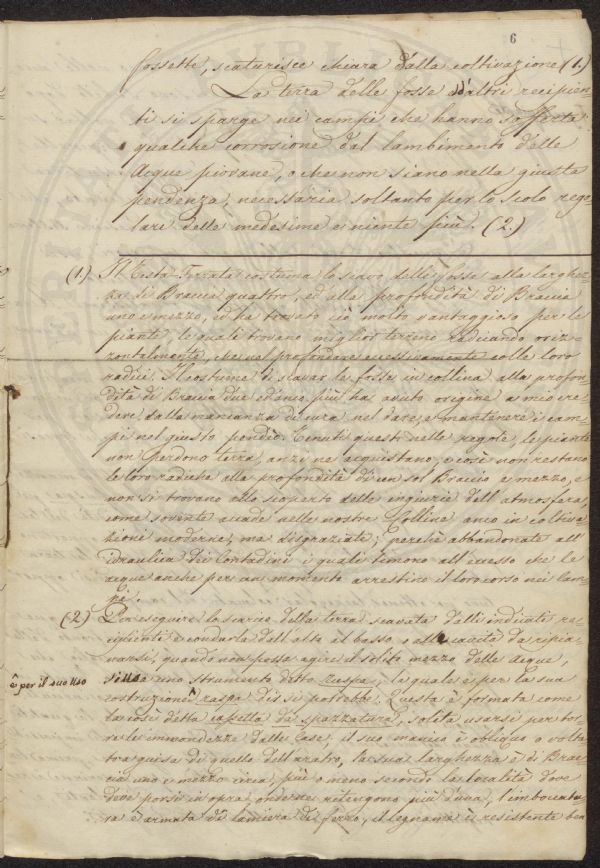 6
fossette, scaturisce chiara dalla coltivazione (1.)
La terra delle fosse d'altri recipien
ti si sparge nei campi che hanno sofferta
qualche corrosione dal lambimento delle
Acque piovane, o che non siano nella giusta
pendenza, necessaria soltanto per lo scolo rego
lare delle medesime e niente più. (2.)
(1.) Il Testa-Ferrata costuma lo scavo delle fosse alla larghez
za di Braccia quattro, ed alla profondità di Braccia
uno e mezzo, ed ha trovato ciò molto vantaggioso per le
piante, le quali trovano miglior terreno radicando oriz
zontalmente, che nel profondare eccessivamente colle loro
radici. Il costume di scavar le fosse in collina alla profon
dità di Braccia due ed anco più ha avuto origine a mio cre
dere dalla mancanza di cura nel dare, e mantenere i cam
pi nel giusto pendio. Tenuti questi nelle regole, le piante
non perdono terra, anzi ne acquistano, e così non restano
le loro radiche alla profondità di un sol Braccio e mezzo, e
non si trovano allo scoperto delle ingiurie dell'atmosfera,
come sovente accade nelle nostre Colline anco in coltiva
zioni moderne, ma disgraziate; perchè abbandonate all'
idraulica dei Contadini i quali temono all'eccesso che le
acque anche per un momento arrestino il loro corso nei Cam
pi.
(2.) Per eseguire lo scarico della terra scavata dalli indicati re
cipienti e condurla dall'alto al basso, o alle cavità da ripia
narsi, quando non possa agire il solito mezzo delle Acque,
vi è uno strumento detto Zespa, la quale è per la sua
è per il suo uso
costruzione raspa dir si potrebbe. Questa è formata come
la così detta cassetta da spazzatura, solita usarsi per tor
re le immondezze dalle Case; il suo manico è obliquo o volto
tra guisa di quello dell'aratro, la sua larghezza è di Brac
cio uno e mezzo circa, più o meno secondo la località dove
deve porsi in opra, onde se ne ritengono più d'una, l'imboccatu
ra è armata di lamiera di ferro, il legname è resistente ben